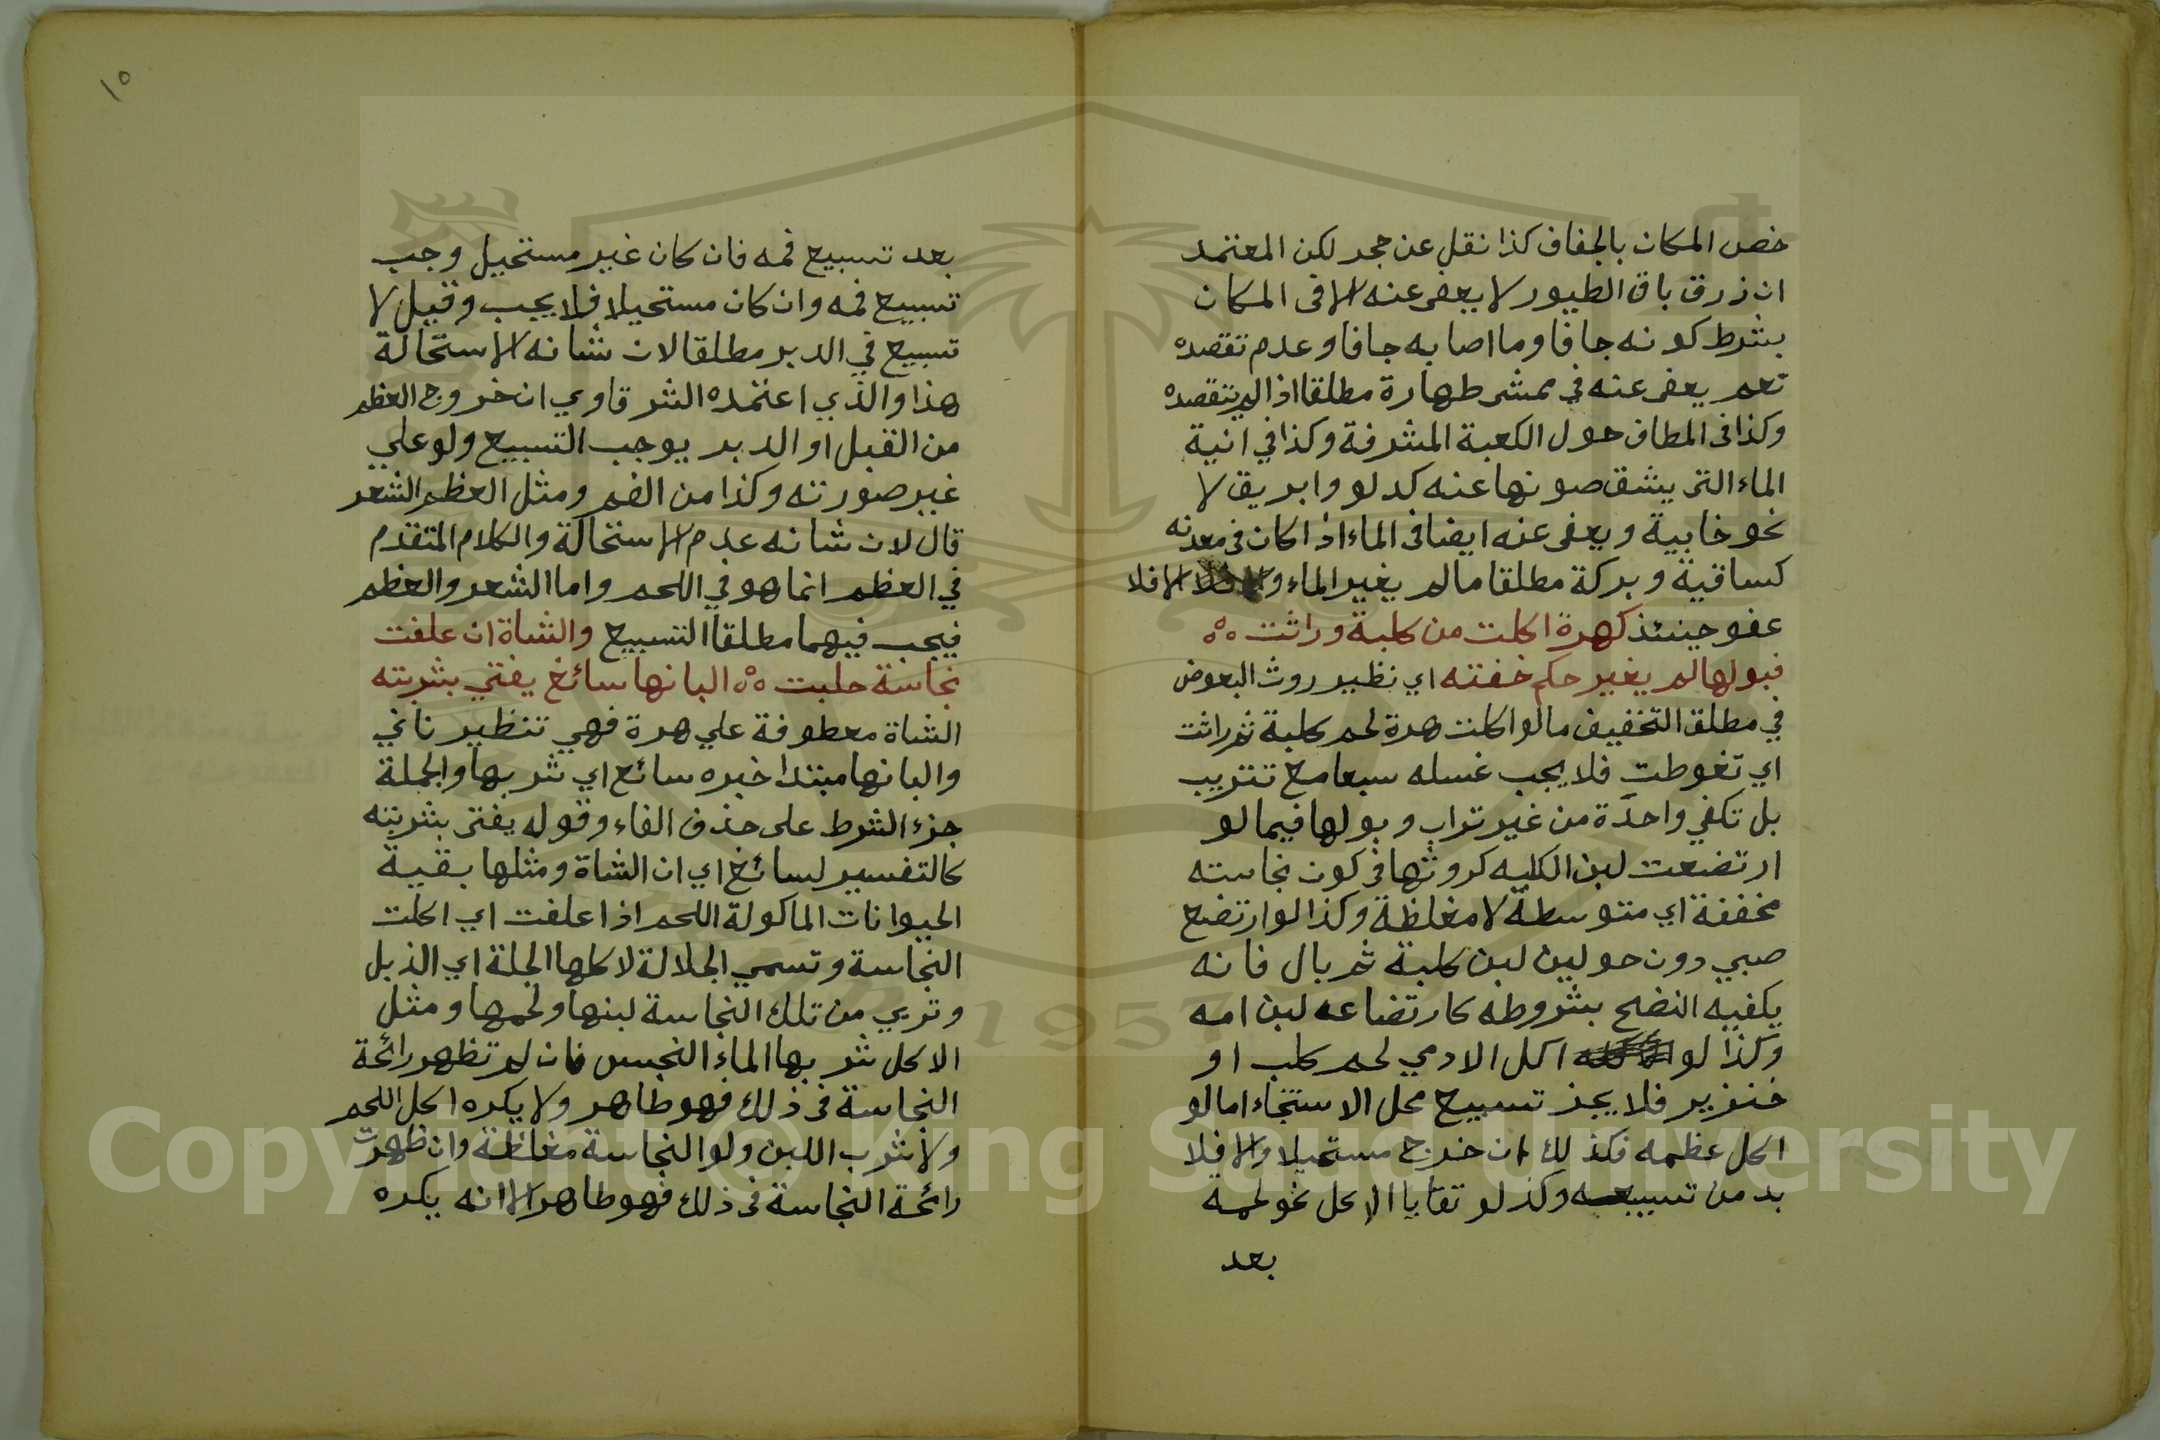 خص المكان بالجفاف كذا نقل عن حجر لكن المعتمد
ان ذرق باقي الطيور لا يعفى عنه الا فى المكان
بشرط كونه جافا وما اصابه جافا وعدم تقصده
نعم يعفى عنه في ممشى طهارة مطلقا اذا لم يتقصده
وكذا فى المطاف حول الكعبة المشرفة وكذا في انية
الماء التى يشق صونها عنه كدلو وابريق لا
نحو خابية ويعفى عنه ايضا فى الماء اذا كان فى معدنه
كساقية وبركة مطلقا مالم يغير الماء والا فلا
عفو حينئذ كهرة اكلت من كلبة وراثت ٥٥
فبولها لم يغير حكم خفته اي نظير روث البعوض
في مطلق التخفيف مالو اكلت هرة لحم كلبة ثم راثت
اي تغوطت فلا يجب غسله سبعا مع تتريب
بل تكفي واحدة من غير تراب وبولها فيما لو
ارتضعت لبن الكلبه كروثها فى كون نجاسته
مخففة اي متوسطة لا مغلظة وكذا لو ارتضع
صبي دون حولين لبن كلبة ثم بال فانه
يكفيه النضح بشروطه كارتضاعه لبن امه
وكذا لو اكل الادمي لحم كلب او
خنزير فلا يجز تسبيع محل الاستنجاء اما لو
اكل عظمه فكذلك ان خرج مستحيلا والا فلا
بد من تسبيعه وكذ لو تقايا الاكل نحو لحمه
بعد
١٥
بعد تسبيع فمه فان كان غير مستحيل وجب
تسبيع فمه وان كان مستحيلا فلا يجب وقيل لا
تسبيع في الدبر مطلقا لان شانه الاستحالة
هذا والذي اعتمده الشرقاوي ان خروج العظم
من القبل او الدبر يوجب التسبيع ولو علي
غير صورته وكذا من الفم ومثل العظم الشعر
قال لان شانه عدم الاستحالة والكلام المتقدم
في العظم انما هو في اللحم واما الشعر والعظم
فيجب فيهما مطلقا التسبيع والشاة ان علفت
نجاسة حلبت ٥٥ البانها سائغ يفتي بشربته
الشاة معطوفة علي هرة فهي تنظير ثاني
والبانها مبتدا خبره سائع اي شربها والجملة
جزء الشرط على حذف الفاء وقوله يفتى بشربته
كالتفسير لسائغ اي ان الشاة ومثلها بقية
الحيوانات الماكولة اللحم اذا علفت اي اكلت
النجاسة وتسمي الجلالة لاكلها الجلة اي الذبل
وتربي من تلك النجاسة لبنها ولحمها ومثل
الاكل شربها الماء النجس فان لم تظهر رائحة
النجاسة فى ذلك فهو طاهر ولا يكره اكل اللحم
ولا شرب اللبن ولو النجاسة مغلظة وان ظهرت
رائحة النجاسة فى ذلك فهو طاهر الا انه يكره
Copyright © King Saud University
1957